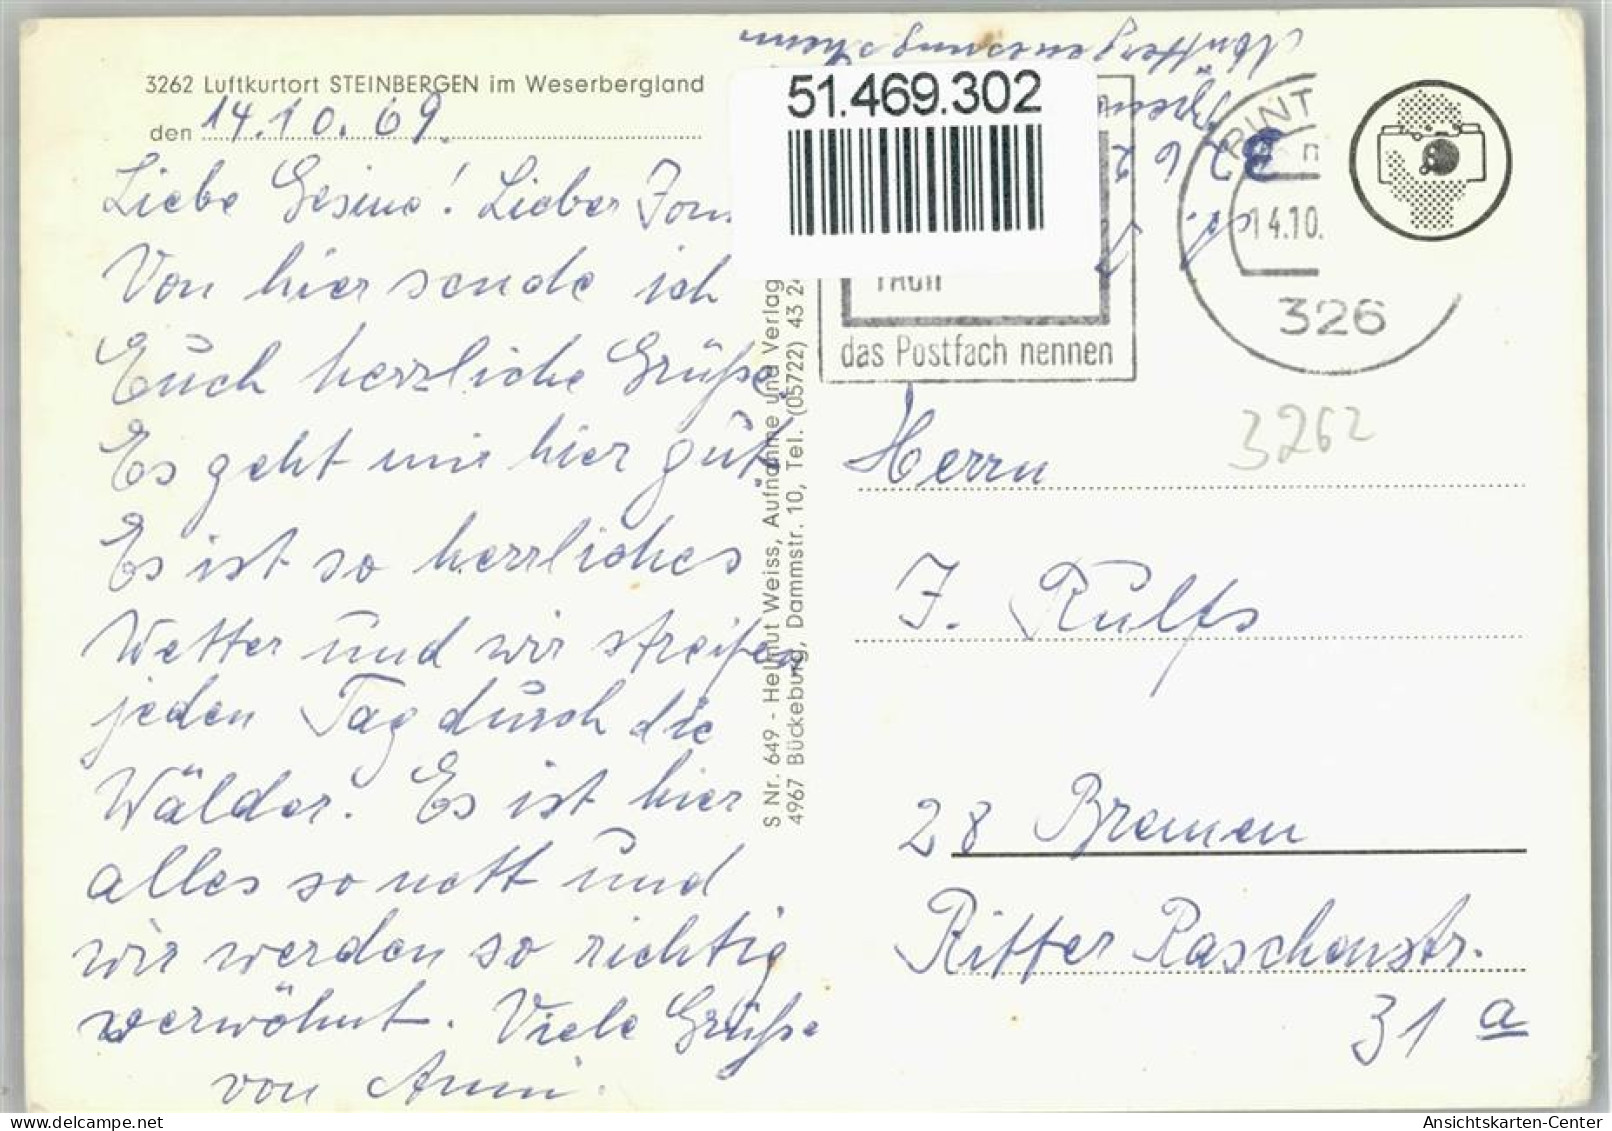 3262 Luftkurtort STEINBERGEN im Weserbergland
den 14.10.69.
Liebe Gesine! Lieber
Von hier sende ich
Euch herzliche Grüße.
Es geht mir hier gut.
Es ist so herrliches
Wetter und wir streifen
jeden Tag durch die
Wälder. Es ist hier
alles so nett und
wir werden so richtig
verwöhnt. Viele Grüße
von Anni.
S Nr. 649 - Hellmut Weiss, Aufnahme und Verlag
4967 Bückeburg, Dammstr. 10, Tel. (05722) 43 24
51.469.302
das Postfach nennen
RINT
14.10.
326
3262
Herrn
J. Rulfs
28 Bremen
Ritter Raschenstr.
31 a
Ansichtskarten-Center